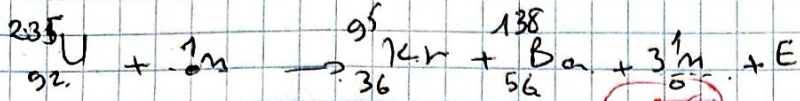 ²³⁵₉₂U + ¹₀n → ⁹⁵₃₆Kr + ¹³⁸₅₆Ba + 3¹₀n + E